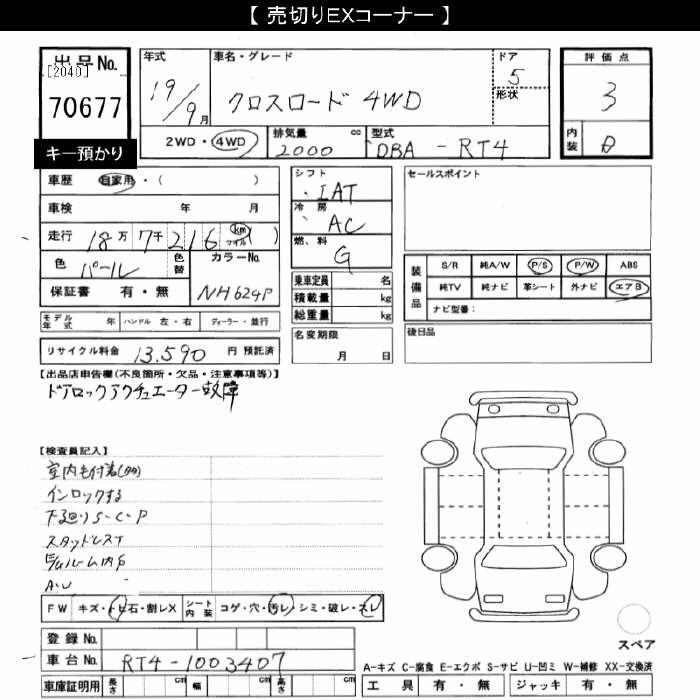 【 売切りEXコーナー 】
出品No.
[2040]
70677
キー預かり
年式
19/9月
車名・グレード
クロスロード 4WD
ドア
5
形状
2WD・4WD
排気量 cc
2000
型式
DBA - RT4
評価点
3
内装
車歴 自家用・( )
車検 年 月
走行 18万 7千 216 km マイル ( )
色 パール 色替 カラーNo.
保証書 有・無 NH624P
モデル年式 年 ハンドル 左・右 ディーラー・並行
リサイクル料金 13,590 円 預託済
シフト
IAT
冷房
AC
燃料
G
乗車定員 名
積載量 kg
総重量 kg
名変期限
月 日
セールスポイント
装備品
S/R 純A/W P/S P/W ABS
純TV 純ナビ 革シート 外ナビ エアB
ナビ型番：
後日品
【出品店申告欄(不良箇所・欠品・注意事項等)】
ドアロックアクチュエーター故障
【検査員記入】
室内毛付着(多)
インロックする
下廻りS-C-P
スタッドレスT
E/gルーム内
A・U
FW キズ・トビ石・割レX シート内装 コゲ・穴・汚レ・シミ・破レ・スレ
登録No.
車台No. RT4-1003407
車庫証明用 長さ cm 幅 cm 高さ cm
スペア
A-キズ C-腐食 E-エクボ S-サビ U-凹ミ W-補修 XX-交換済
工具 有・無 ジャッキ 有・無